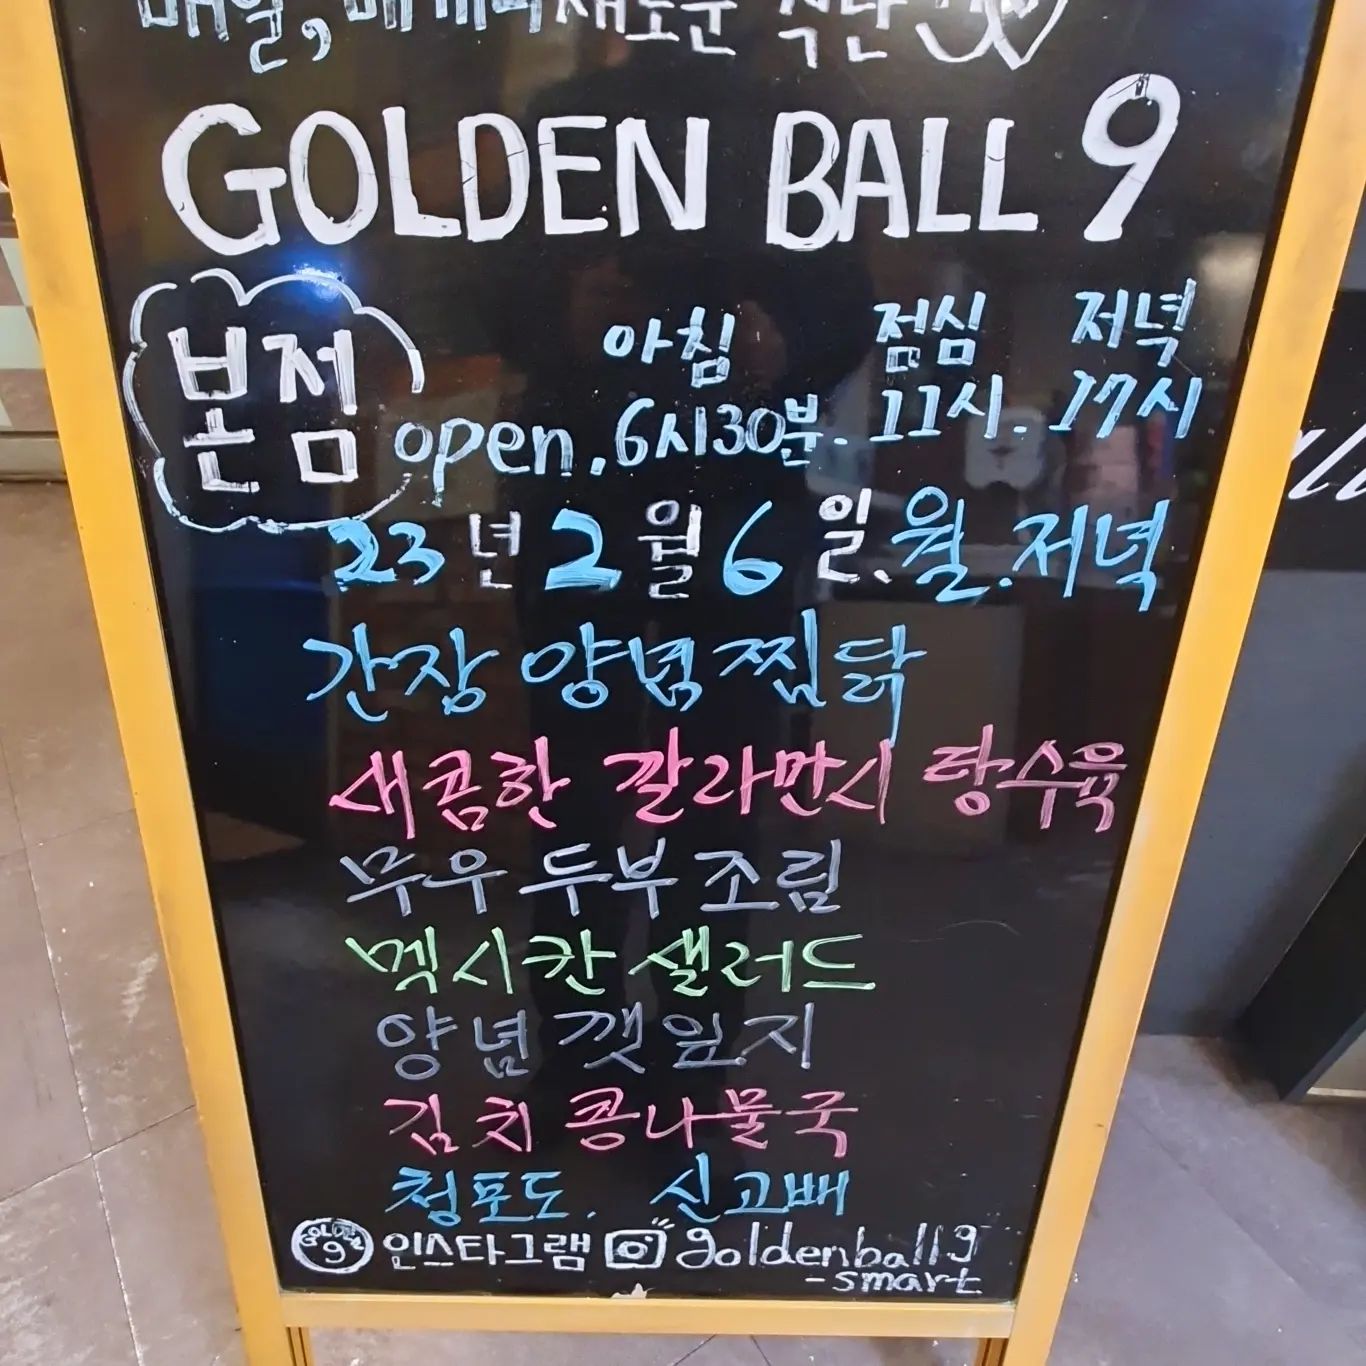 매일, 매끼마 새로운 식단
GOLDEN BALL 9
본점
아침 점심 저녁
open. 6시30분. 11시. 17시
23년 2월 6일. 월. 저녁
간장 양념 찜닭
새콤한 깔라만시 탕수육
무우 두부 조림
멕시칸 샐러드
양념 깻잎지
김치 콩나물국
청포도. 신고배
GOLDEN 9 인스타그램 goldenball9
-smart